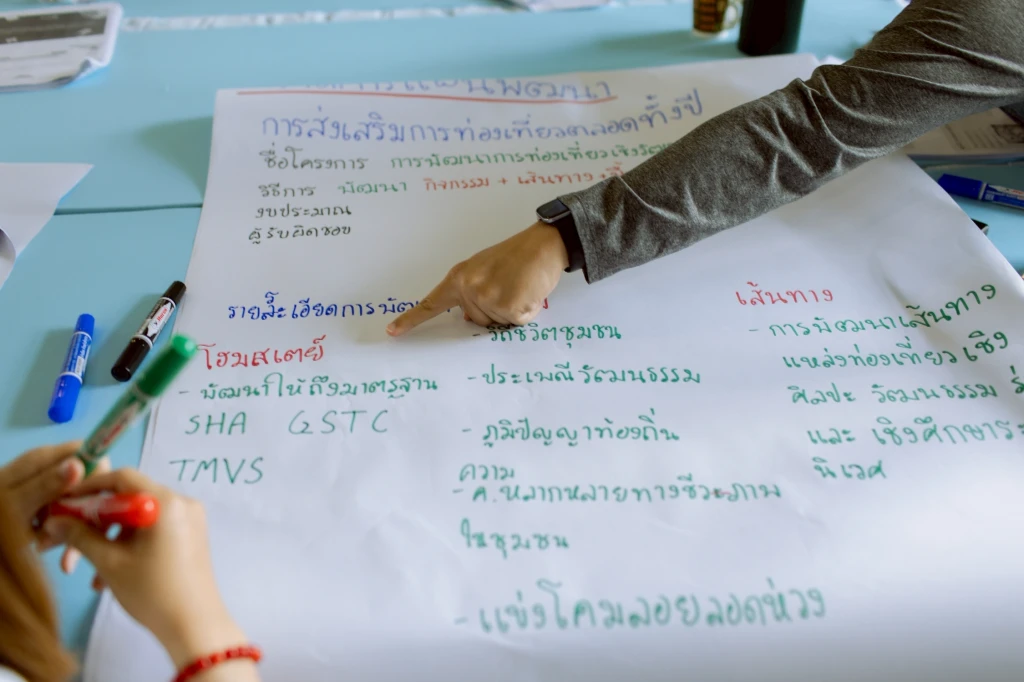 แผนพัฒนา
การส่งเสริมการท่องเที่ยวตลอดทั้งปี
ชื่อโครงการ การพัฒนาการท่องเที่ยวเชิงวัฒ
วิธีการ พัฒนา กิจกรรม + เส้นทาง
งบประมาณ
ผู้รับผิดชอบ
รายละเอียดการพัฒ
โฮมสเตย์
- พัฒนาให้ถึงมาตรฐาน
SHA GSTC
TMVS
- วิถีชีวิตชุมชน
- ประเพณีวัฒนธรรม
- ภูมิปัญญาท้องถิ่น
ความ
- ค.หลากหลายทางชีวะภาพ
ในชุมชน
- แข่งโคมลอยลอดห่วง
เส้นทาง
- การพัฒนาเส้นทาง
แหล่งท่องเที่ยวเชิง
ศิลปะ วัฒนธรรม
และ เชิงศึกษาระ
นิเวศ